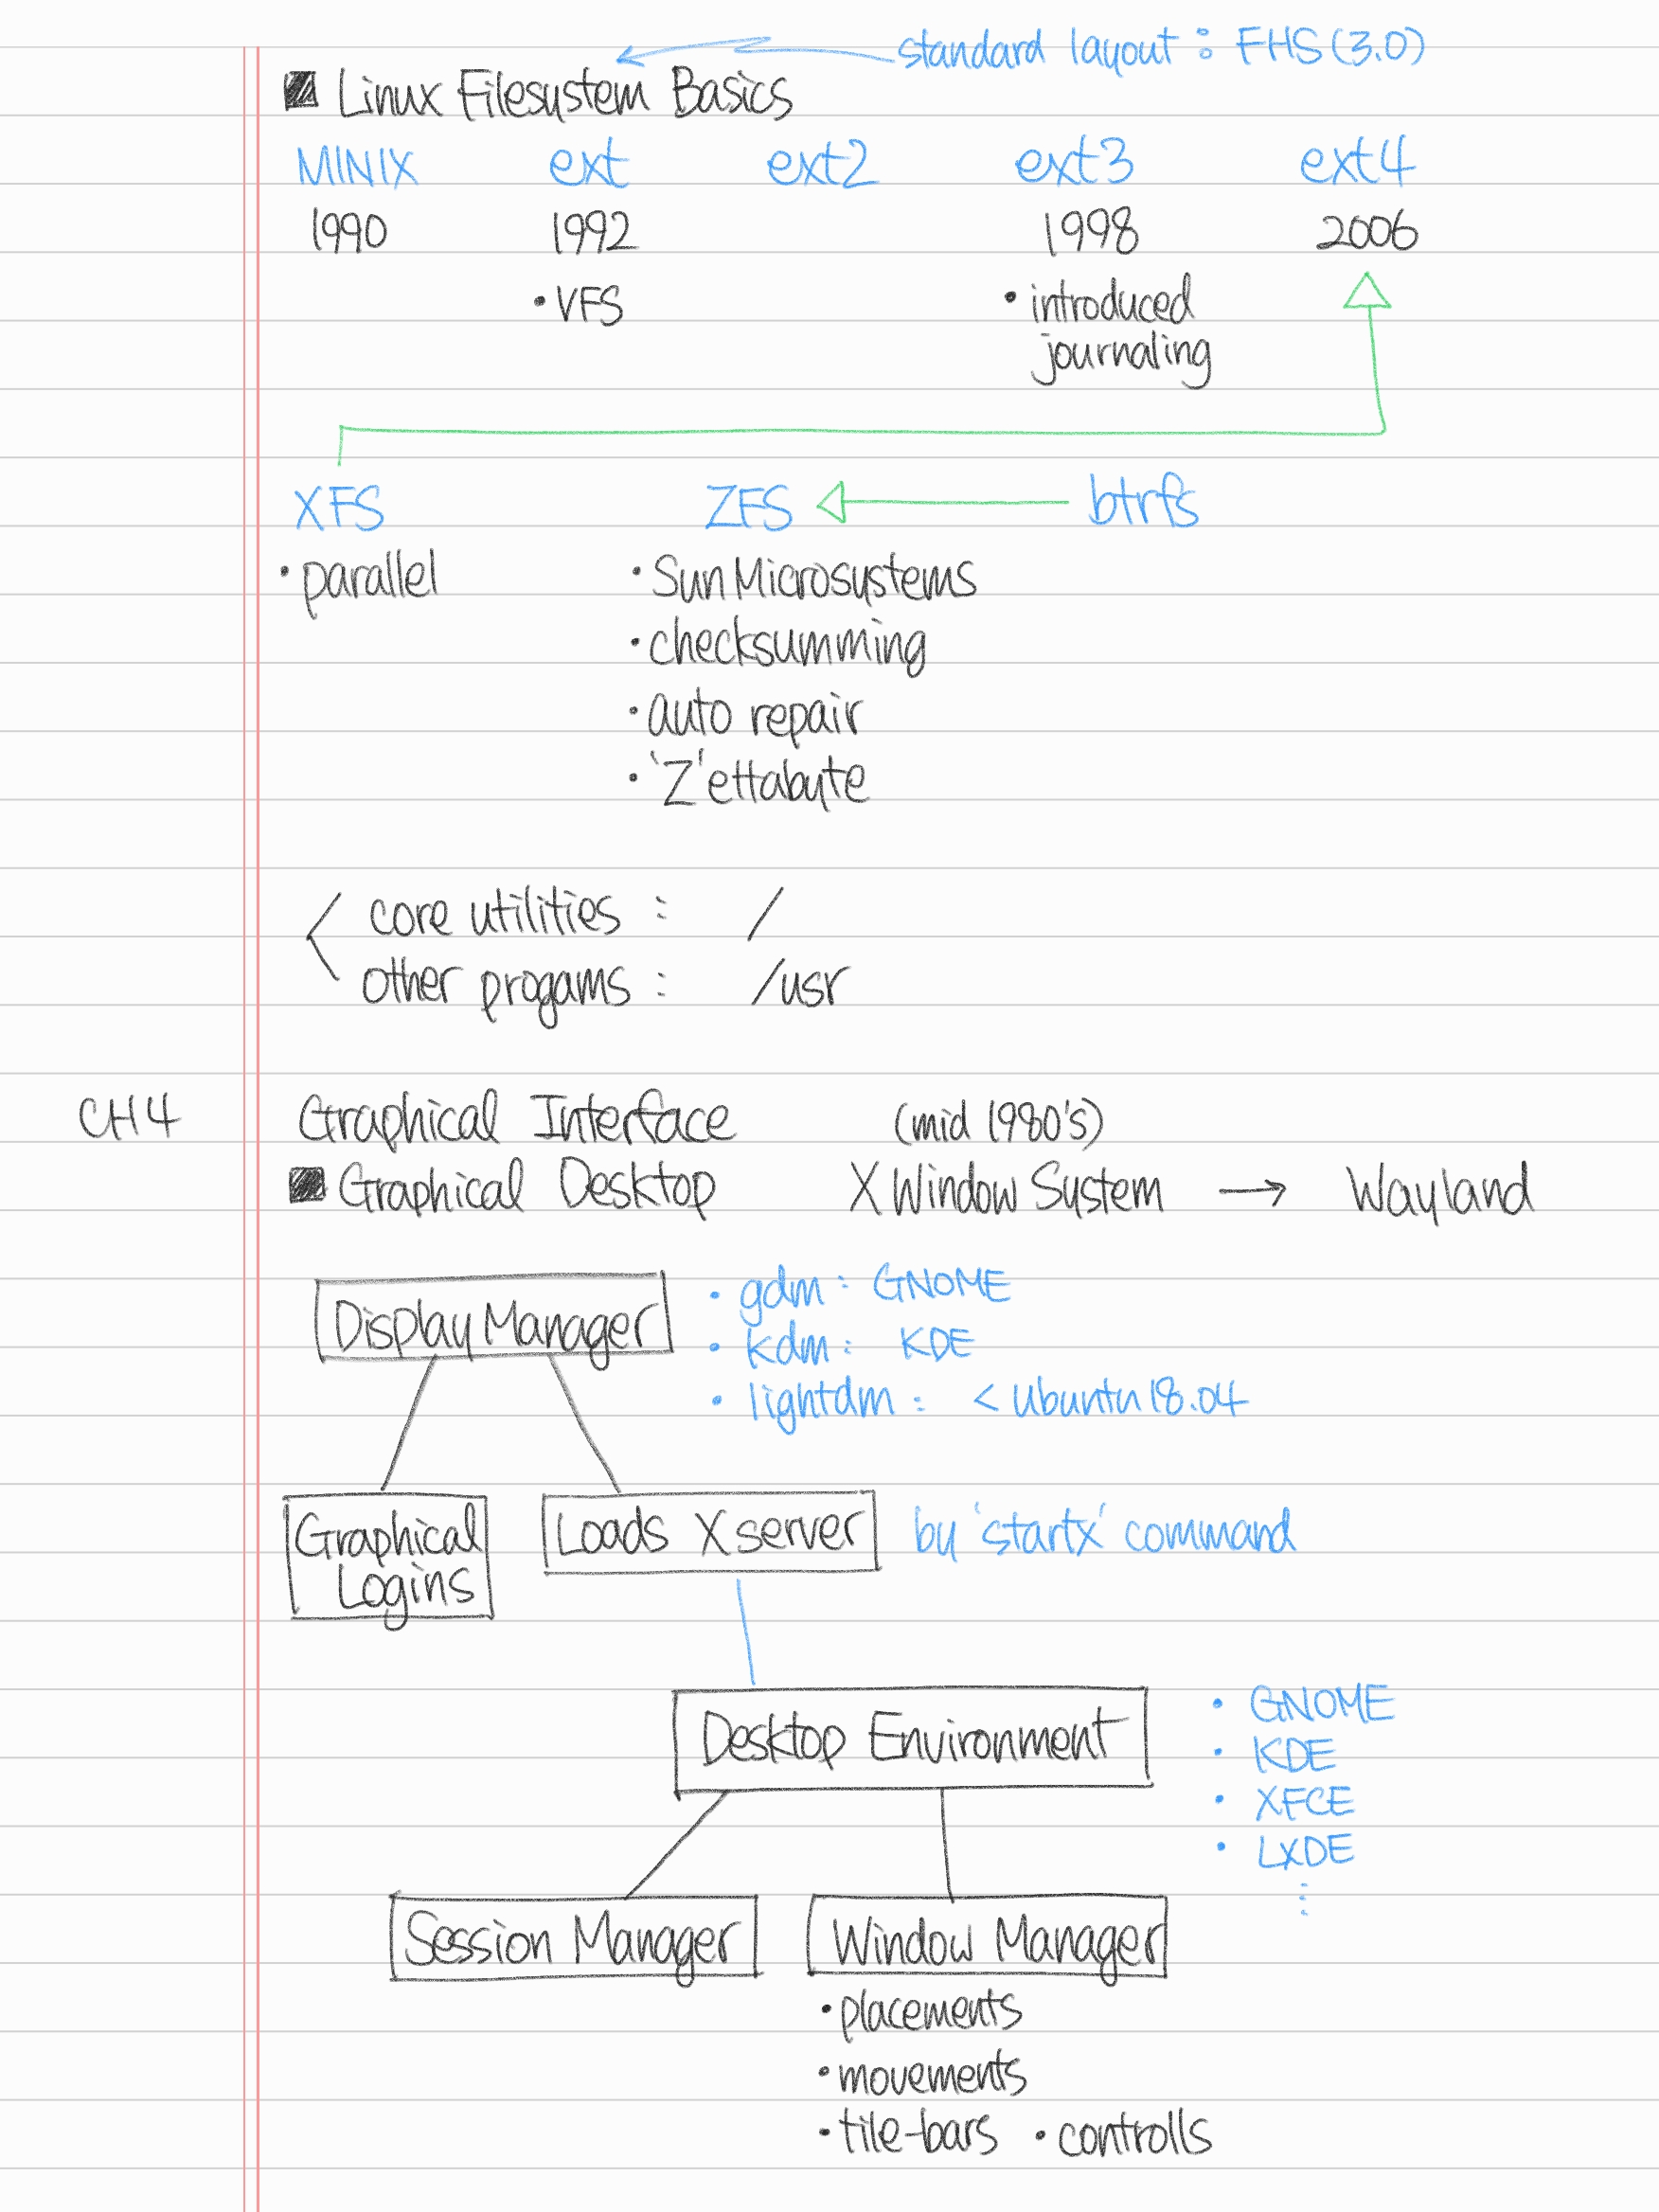 standard layout : FHS (3.0)
Linux Filesystem Basics
MINIX ext ext2 ext3 ext4
1990 1992 1998 2006
• VFS • introduced
journaling
XFS ZFS btrfs
• parallel • Sun Microsystems
• checksumming
• auto repair
• 'Z'ettabyte
core utilities : /
other progams : /usr
CH4 Graphical Interface (mid 1980's)
Graphical Desktop X Window System → Wayland
Display Manager
• gdm : GNOME
• kdm : KDE
• lightdm : < Ubuntu 18.04
Graphical
Logins
Loads X server by 'startx' command
Desktop Environment
• GNOME
• KDE
• XFCE
• LXDE
⋮
Session Manager Window Manager
• placements
• movements
• tile-bars • controlls